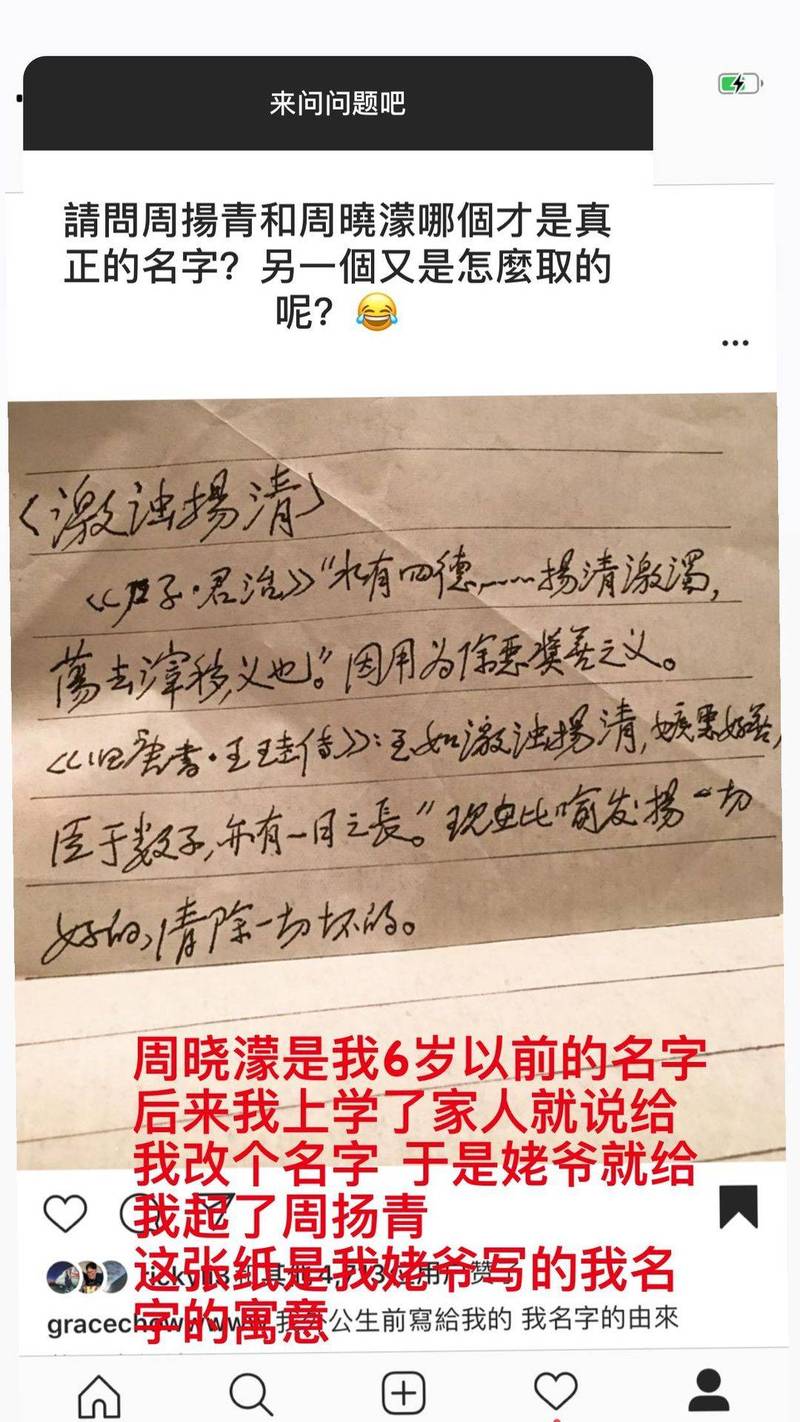 来问问题吧
請問周揚青和周曉濛哪個才是真
正的名字？另一個又是怎麼取的
呢？😂
〈激浊揚清〉
《尸子·君治》“水有四德,……揚清激濁,
蕩去滓秽,义也。”因用为除恶奖善之义。
《旧唐书·王珪传》：至如激浊揚清,嫉悪好善,
臣于数子,亦有一日之長。”现也比喻发揚一切
好的,清除一切坏的。
周晓濛是我6岁以前的名字
后来我上学了家人就说给
我改个名字 于是姥爷就给
我起了周扬青
这张纸是我姥爷写的我名
字的寓意
gracechowwww 我外公生前寫給我的 我名字的由來